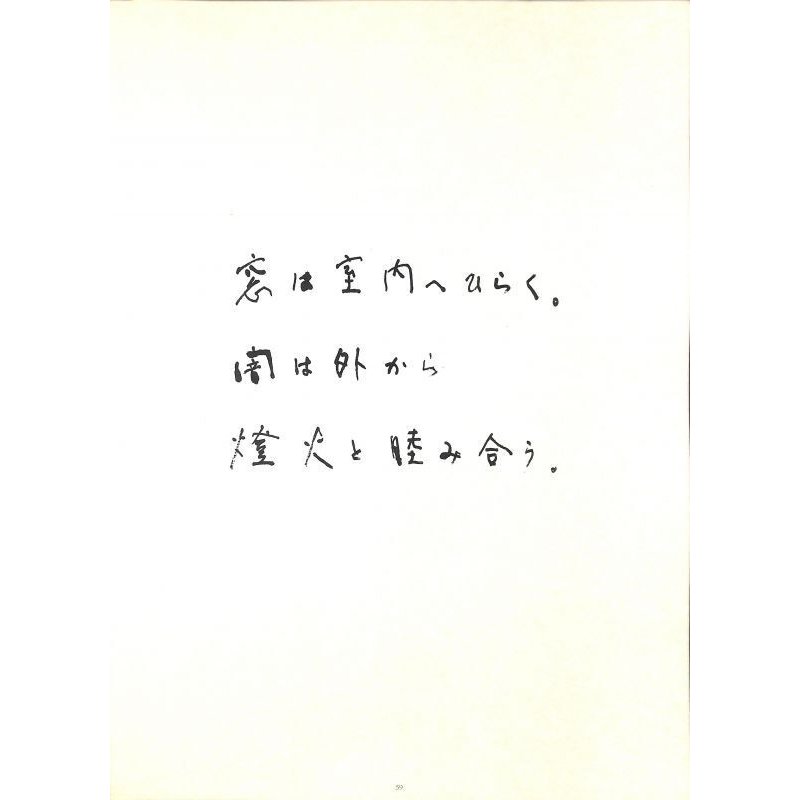 窓は室内へひらく。
闇は外から
燈火と睦み合う。